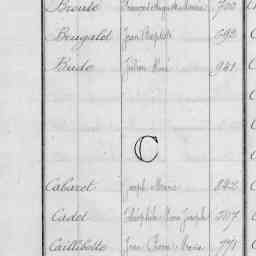 Broute François Auguste Marie 700
Bougalet Jean Baptiste 693
Bude Julien René 941
C
Cabaret Joseph Marie 842
Cadet Théophile Marie Joseph 707
Caillibotte Jean Pierre Marie 791